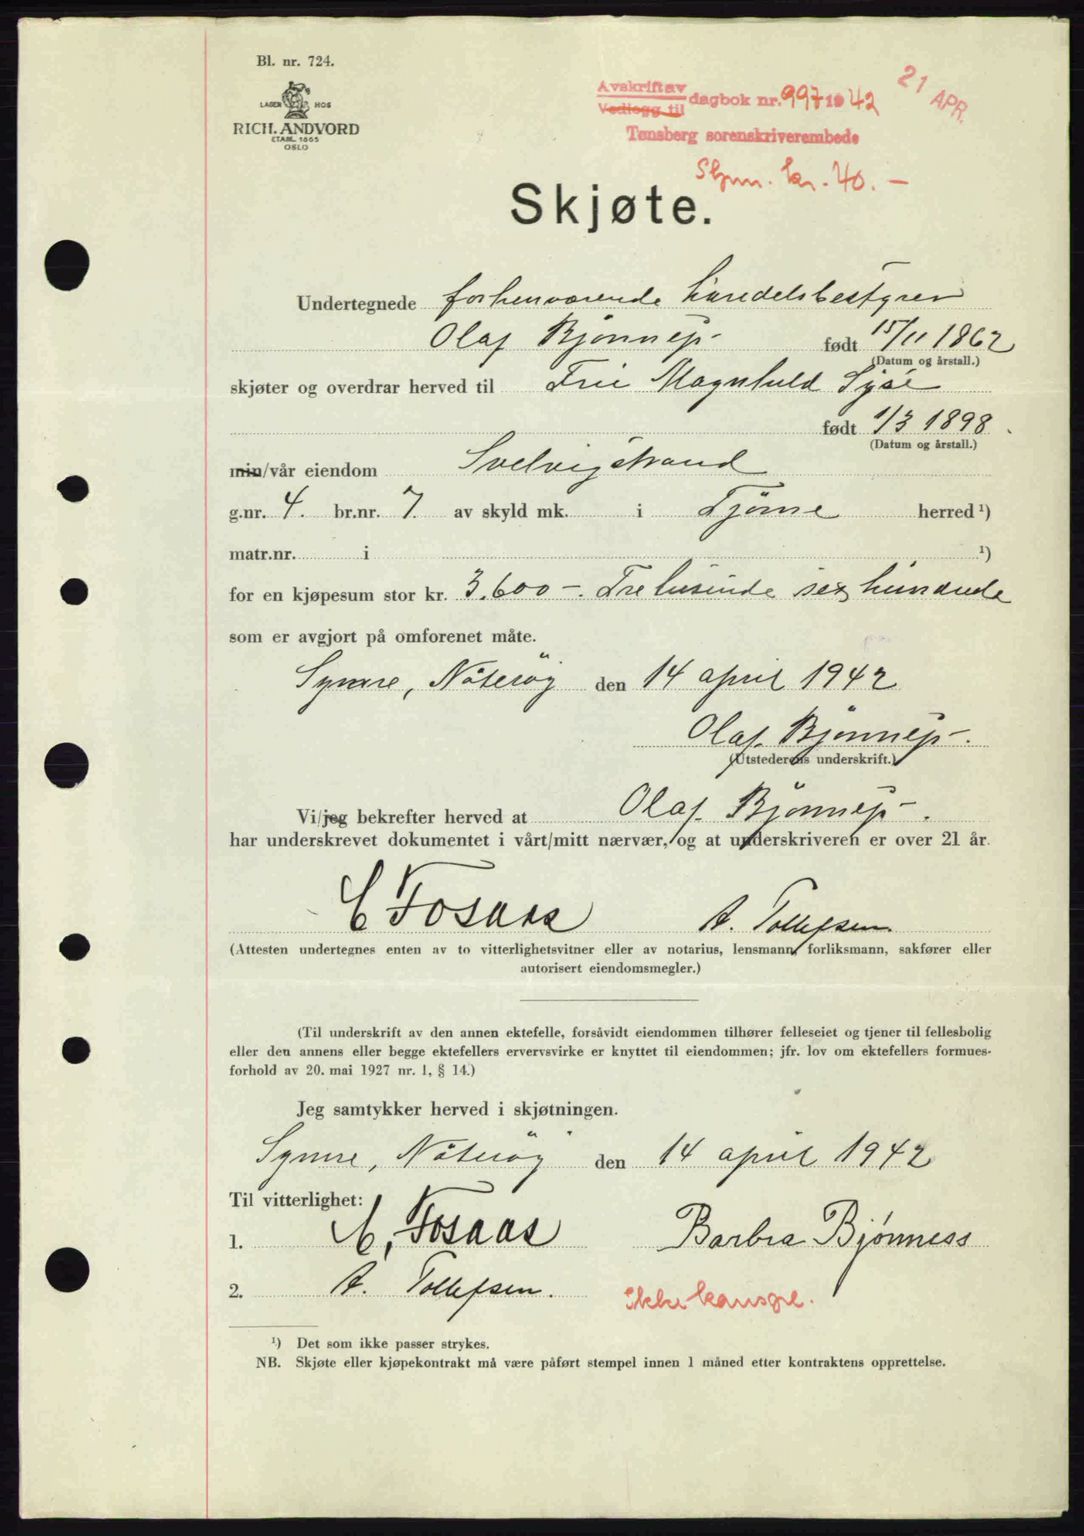 Bl. nr. 724.
LAGER HOS
RICH. ANDVORD
ETABL. 1865
OSLO
Avskrift av
Vedlegg til dagbok nr. 997 1942
21 APR.
Tønsberg sorenskriverembede
Stpm. kr. 40.-
Skjøte.
Undertegnede forhenværende handelsbestyrer
Olaf Bjønness født 15/11 1862
(Datum og årstall.)
skjøter og overdrar herved til Frie Magnhild Syse
født 1/3 1898.
(Datum og årstall.)
min/vår eiendom Svelvigstrand
g.nr. 4. br.nr. 7. av skyld mk. i Tjøme herred ¹)
matr.nr. i ¹)
for en kjøpesum stor kr. 3.600-. Tretusinde sex hundrede
som er avgjort på omforenet måte.
Symre, Nøterøy den 14 april 1942
Olaf Bjønness.
(Utstederens underskrift.)
Vi/jeg bekrefter herved at Olaf Bjønness.
har underskrevet dokumentet i vårt/mitt nærvær, og at underskriveren er over 21 år.
E Fosaas A. Tollefsen.
(Attesten undertegnes enten av to vitterlighetsvitner eller av notarius, lensmann, forliksmann, sakfører eller
autorisert eiendomsmegler.)
(Til underskrift av den annen ektefelle, forsåvidt eiendommen tilhører felleseiet og tjener til fellesbolig
eller den annens eller begge ektefellers ervervsvirke er knyttet til eiendommen; jfr. lov om ektefellers formues-
forhold av 20. mai 1927 nr. 1, § 14.)
Jeg samtykker herved i skjøtningen.
Symre, Nøterøy den 14 april 1942
Til vitterlighet:
1. E, Fosaas Barbra Bjønness
2. A. Tollefsen. Ikke
¹) Det som ikke passer strykes.
NB. Skjøte eller kjøpekontrakt må være påført stempel innen 1 måned etter kontraktens opprettelse.